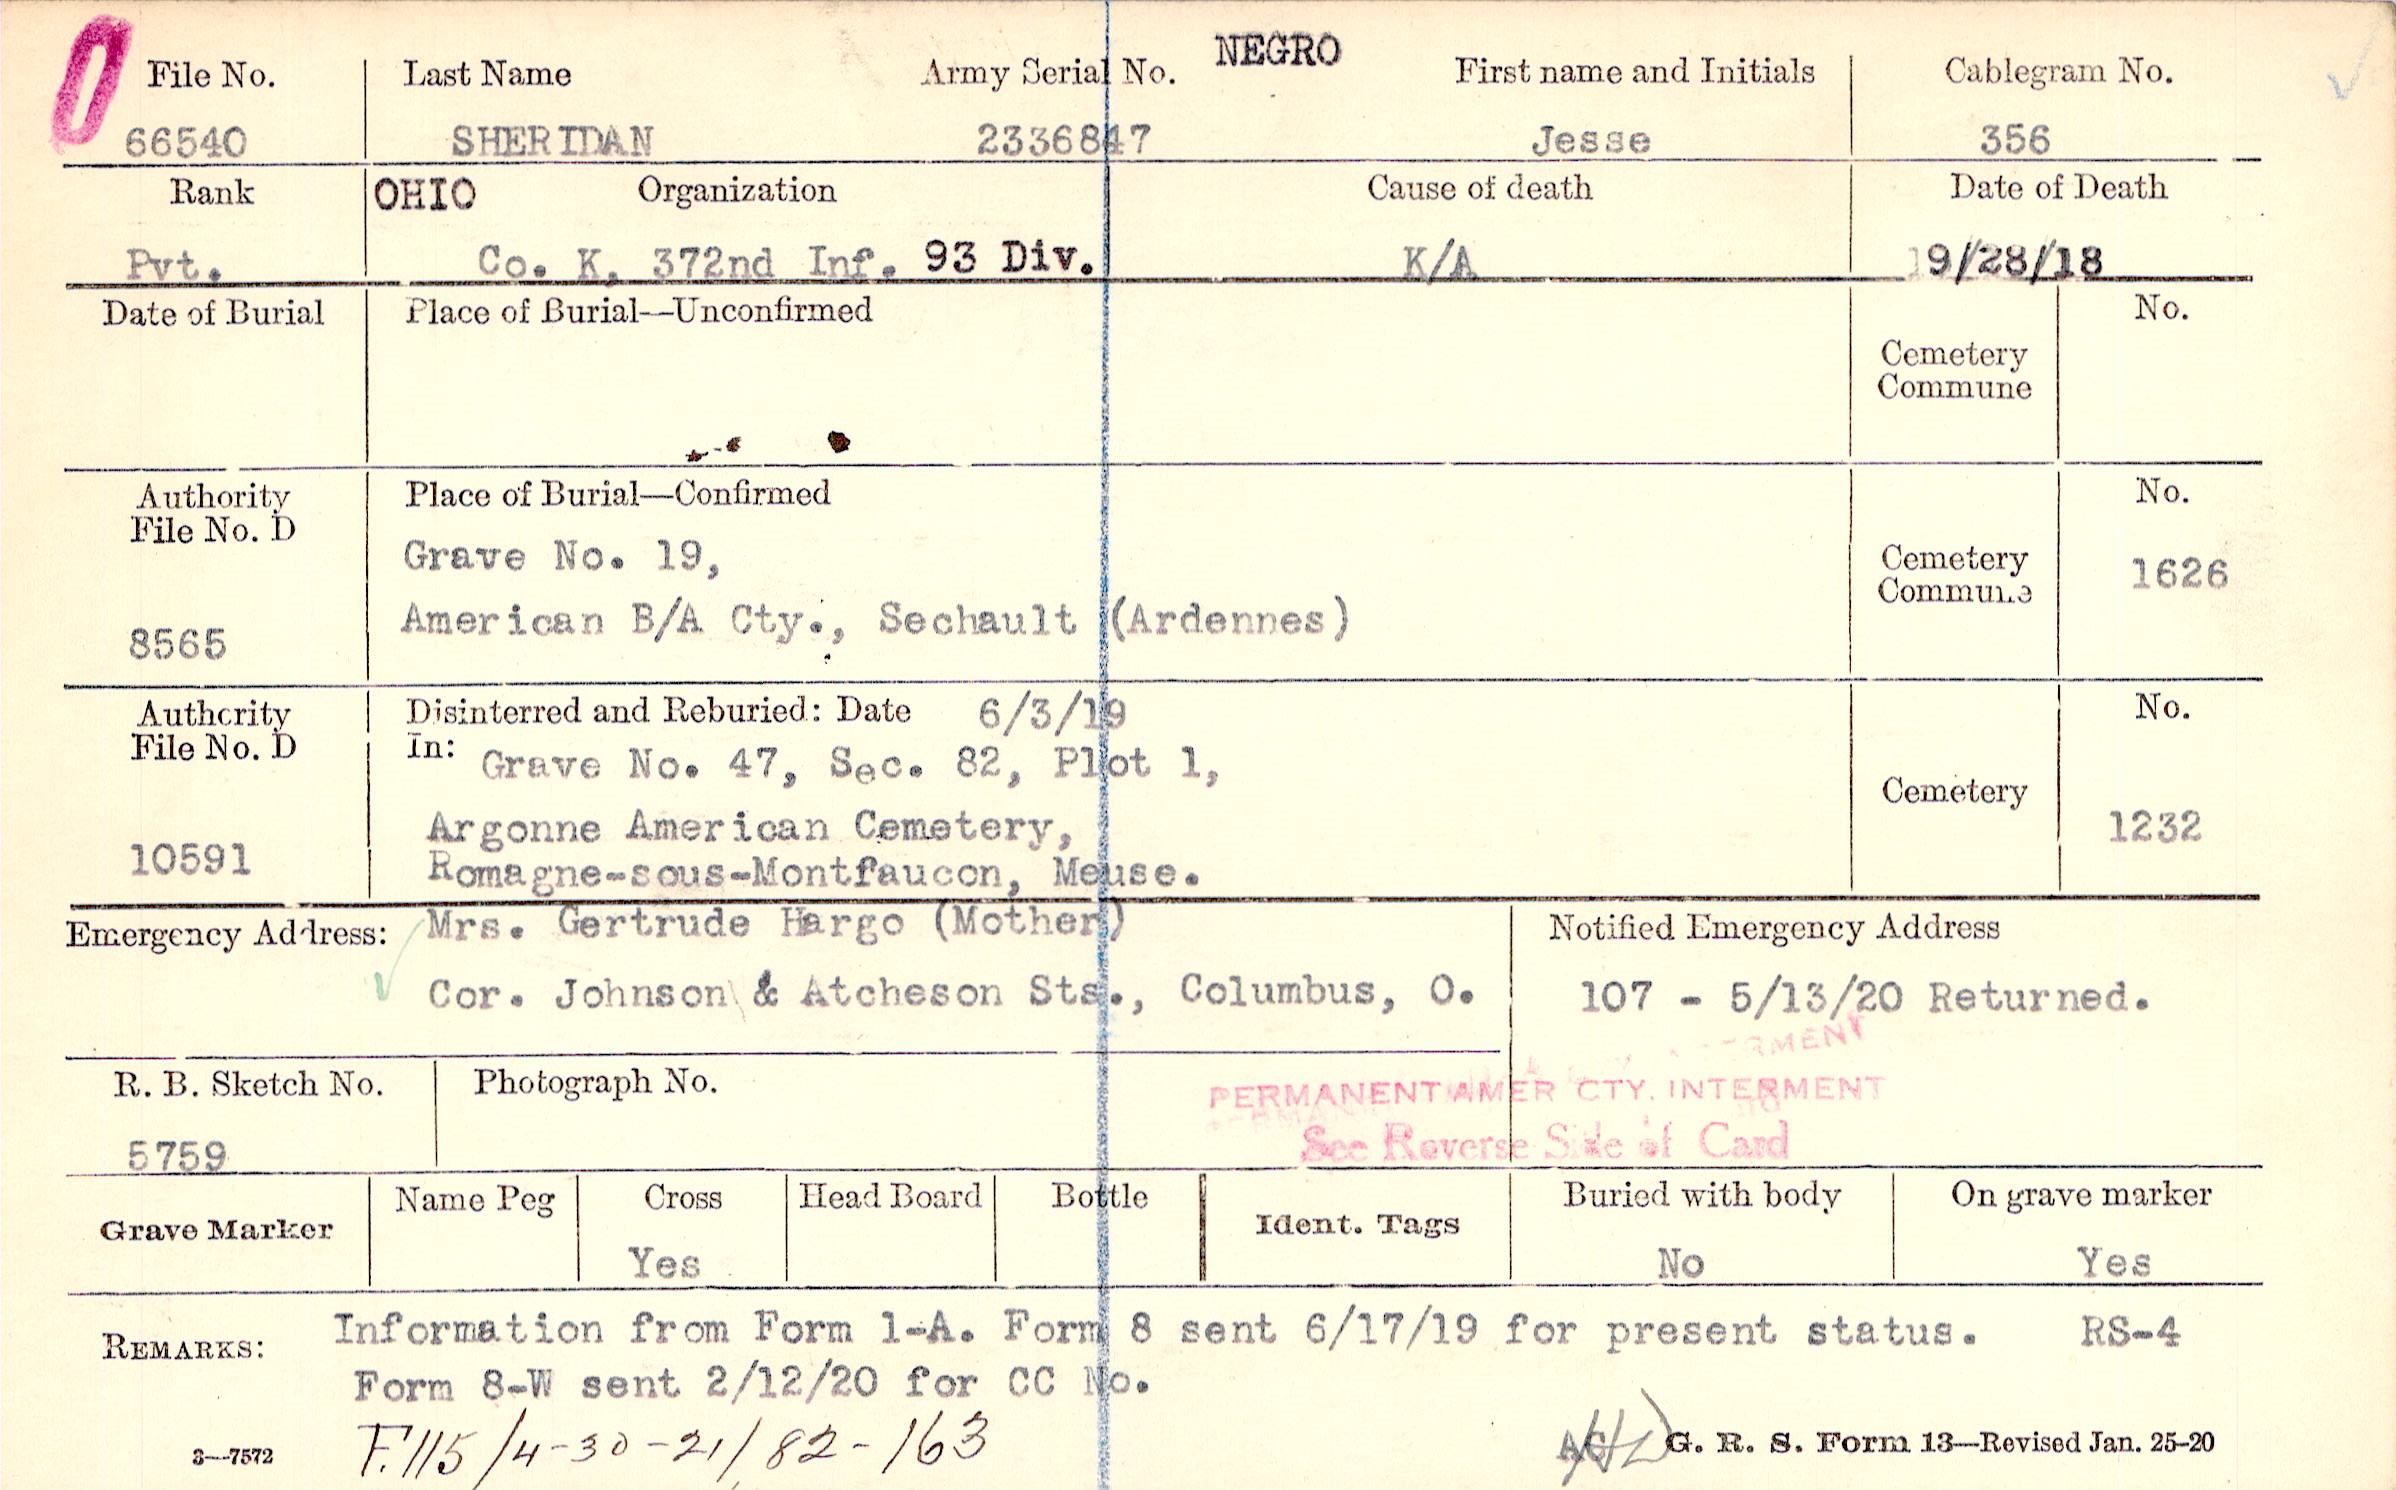 NEGRO
File No. Last Name Army Serial No. First name and Initials Cablegram No.
66540 SHERIDAN 2336847 Jesse 356
Rank OHIO Organization Cause of death Date of Death
Pvt. Co. K, 372nd Inf. 93 Div. K/A 9/28/18
Date of Burial Place of Burial—Unconfirmed No.
Cemetery
Commune
Authority Place of Burial—Confirmed No.
File No. D
Grave No. 19,
Cemetery 1626
Commune
American B/A Cty., Sechault (Ardennes)
8565
Authority Disinterred and Reburied: Date 6/3/19 No.
File No. D In: Grave No. 47, Sec. 82, Plot 1,
Cemetery
Argonne American Cemetery, 1232
10591 Romagne-sous-Montfaucon, Meuse.
Emergency Address: Mrs. Gertrude Hargo (Mother) Notified Emergency Address
Cor. Johnson & Atcheson Sts., Columbus, O. 107 - 5/13/20 Returned.
R. B. Sketch No. Photograph No. PERMANENT AMER CTY. INTERMENT
See Reverse Side of Card
5759
Grave Marker Name Peg Cross Head Board Bottle Ident. Tags Buried with body On grave marker
Yes No Yes
REMARKS: Information from Form 1-A. Form 8 sent 6/17/19 for present status. RS-4
Form 8-W sent 2/12/20 for CC No.
3—7572 F.115/4-30-21/82-163 G. R. S. Form 13—Revised Jan. 25-20